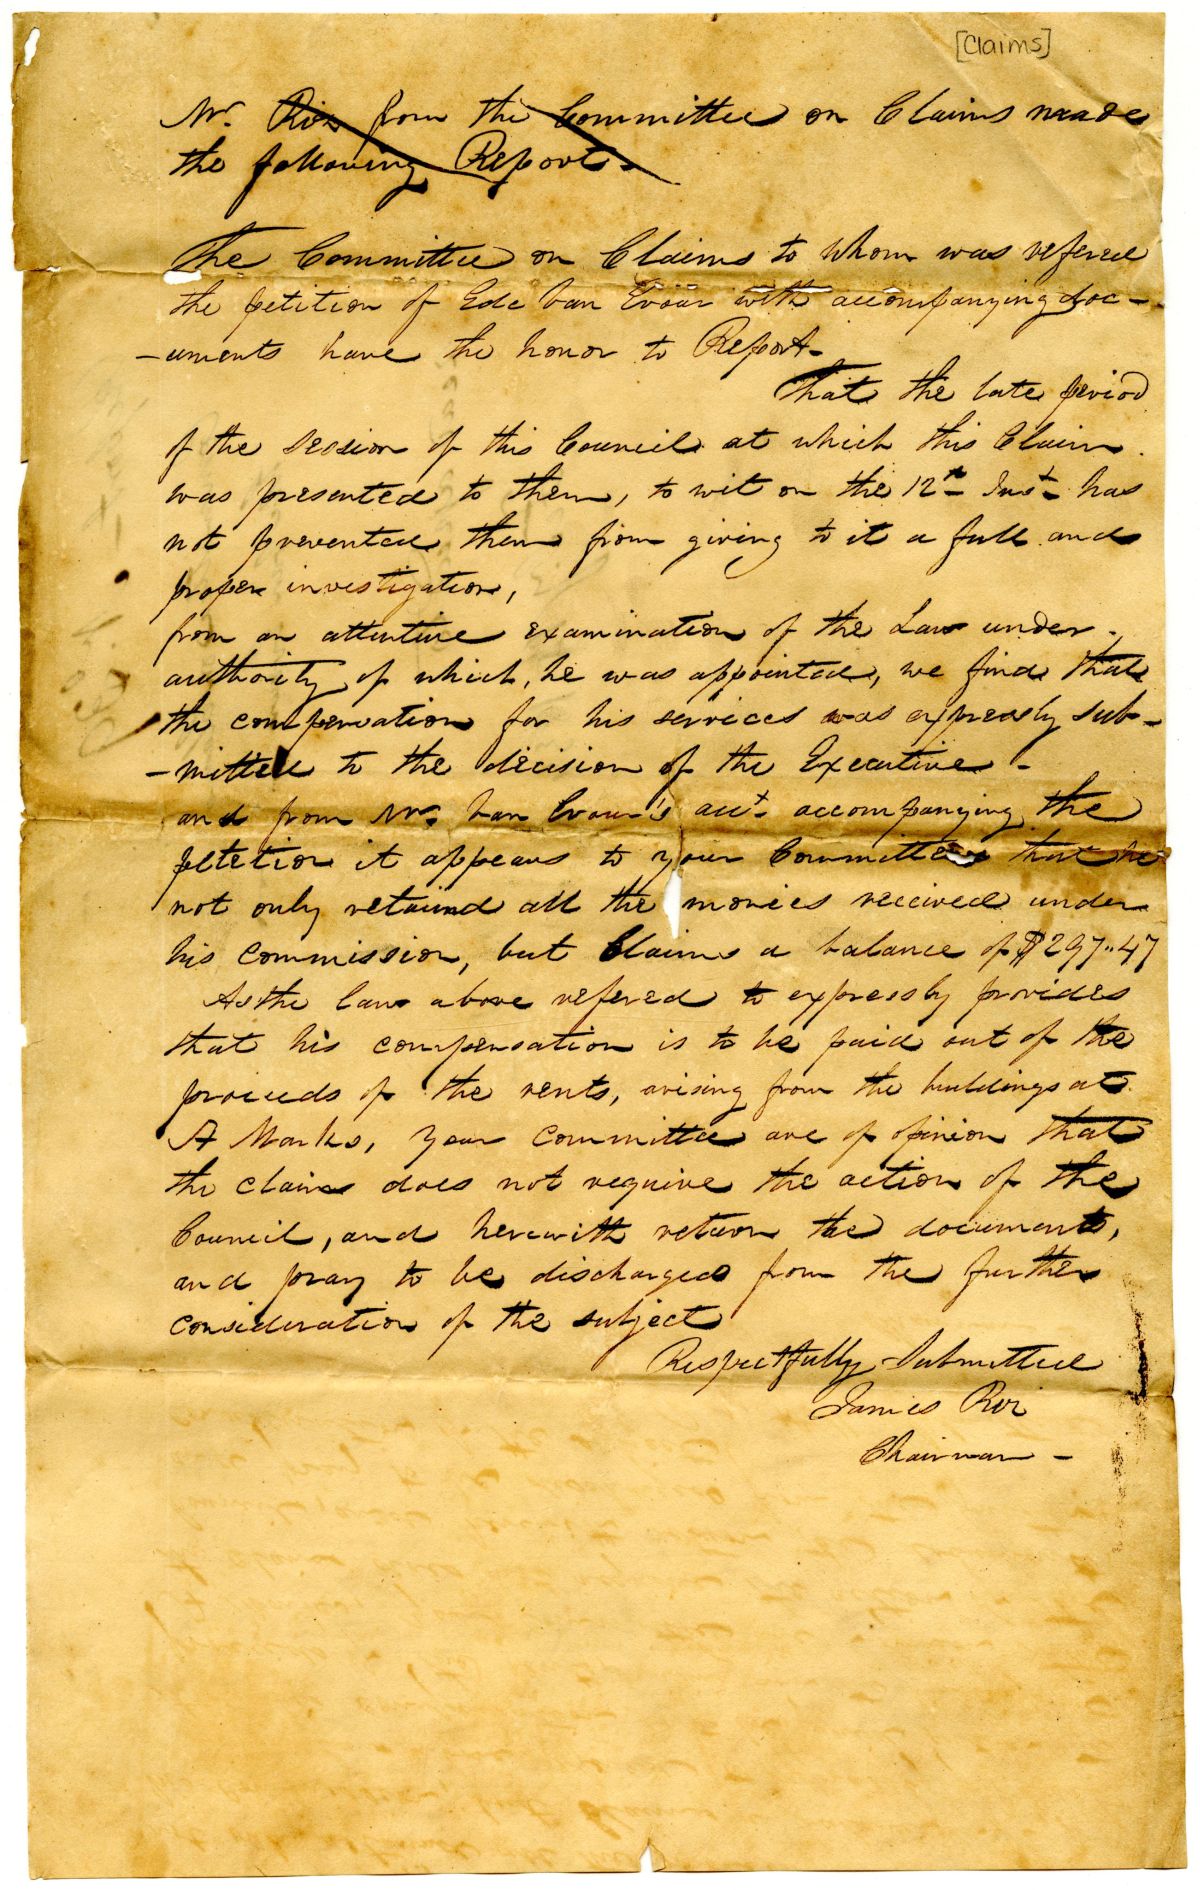 [Claims]
Mr. Rix from the Committee on Claims made
the following Report.
The Committee on Claims to whom was refered
the petition of Ede Van Evour with accompanying doc-
-uments have the honor to Report.
That the late period
of the session of this Council at which this Claim
was presented to them, to wit on the 12th Inst. has
not prevented them from giving to it a full and
proper investigation,
from an attentive examination of the Law under
authority of which, he was appointed, we find that
the compensation for his services was expressly sub-
-mitted to the decision of the Executive -
and from Mr. Van Evour's acct. accompanying the
petetion it appears to your Committee that he
not only retained all the monies received under
his commission, but Claims a balance of $297..47
As the law above refered to expressly provides
that his compensation is to be paid out of the
proceeds of the rents, arising from the buildings at
St Marks, your committee are of opinion that
the claim does not require the action of the
Council, and herewith return the documents,
and pray to be discharged from the further
consideration of the subject
Respectfully Submitted
James Rix
Chairman -